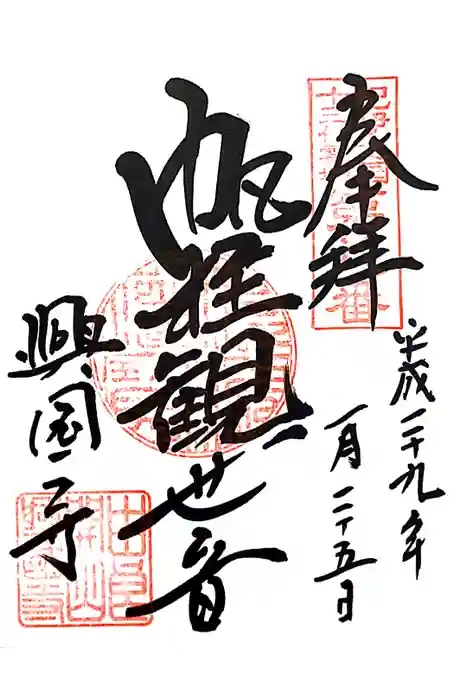 奉拝
平成二十九年
一月二十五日
帆柱観世音
興国寺